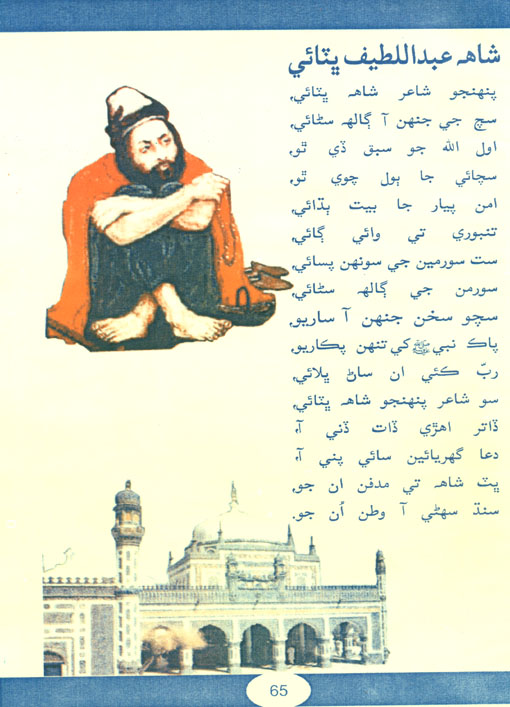 شاهہ عبداللطيف ڀٽائي
پنهنجو شاعر شاهہ ڀٽائي،
سچ جي جنهن آ ڳالهہ سڻائي،
اول الله جو سبق ڏي ٿو،
سچائي جا ٻول چوي ٿو،
امن پيار جا بيت ٻڌائي،
تنبوري تي وائي ڳائي،
ست سورمين جي سونهن پسائي،
سورمن جي ڳالهہ سڻائي،
سچو سخن جنهن آ ساريو،
پاڪ نبي ﷺ کي تنهن پڪاريو،
ربّ ڪئي ان ساڻ ڀلائي،
سو شاعر پنهنجو شاهہ ڀٽائي،
ڏاتر اهڙي ڏات ڏني آ،
دعا گهريائين سائي پني آ،
ڀٽ شاهہ تي مدفن ان جو،
سنڌ سهڻي آ وطن اُن جو.
65